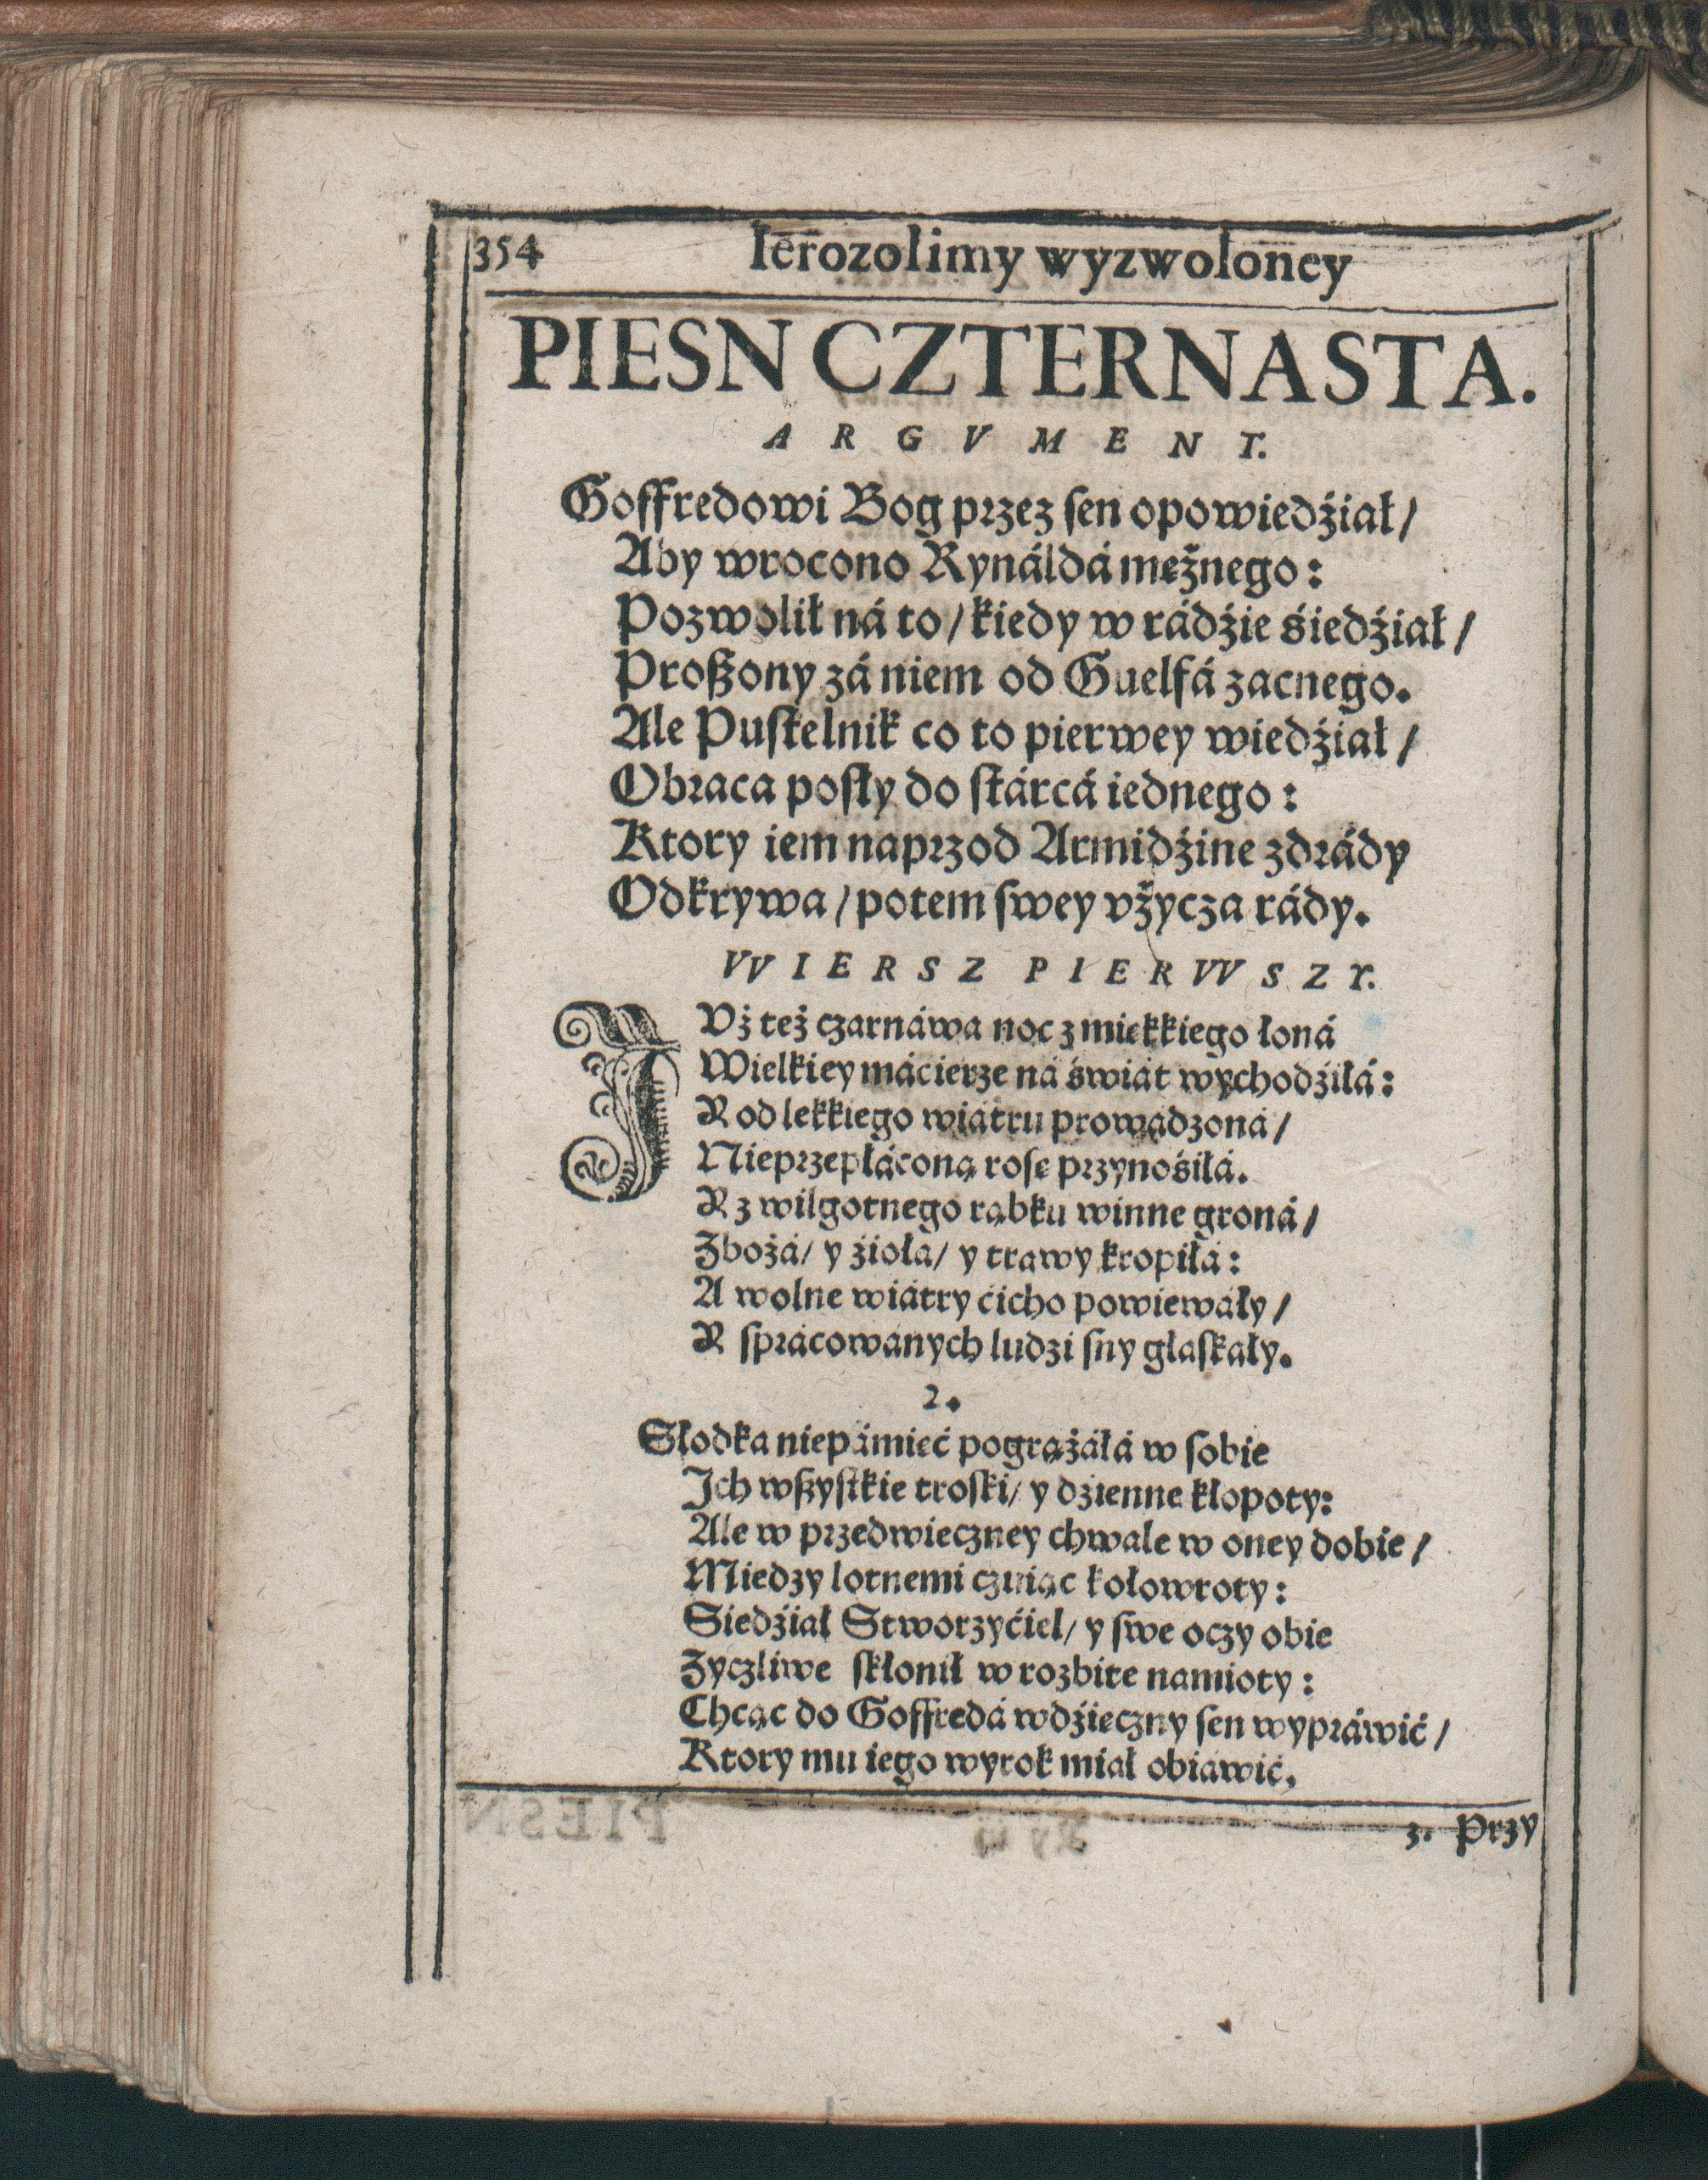 354 Ierozolimy wyzwoloney
PIESN CZTERNASTA.
ARGVMENT.
Goffredowi Bog przez ſen opowiedźiał/
Aby wrocono Rynáldá mężnego:
Pozwolił ná to/ kiedy w rádźie śiedźiał/
Proßony zá niem od Guelfá zacnego.
Ale Puſtelnik co to pierwey wiedźiał/
Obraca poſły do ſtárcá iednego:
Ktory iem naprzod Armidźine zdrády
Odkrywa/ potem ſwey vżycza rády.
WIERSZ PIERWSZY.
IVż też czarnáwa noc z miękkiego łoná
Wielkiey mácierze ná świát wychodźiłá:
Y od lekkiego wiátru prowádzoná/
Nieprzepłáconą roſę przynośiłá.
Y z wilgotnego rąbku winne groná/
Zbożá/ y źioła/ y trawy kropiłá:
A wolne wiátry ćicho powiewáły/
Y ſprácowánych ludzi ſny głaſkały.
2.
Słodka niepámięć pogrążáłá w ſobie
Ich wßyſtkie troſki/ y dźienne kłopoty:
Ale w przedwieczney chwale w oney dobie/
Miedzy lotnemi czuiąc kołowroty:
Siedźiał Stworzyćiel/ y ſwe oczy obie
Zyczliwe ſkłonił w rozbite namioty:
Chcąc do Goffredá wdźięczny ſen wypráwić/
Ktory mu iego wyrok miał obiáwić.
3. Przy